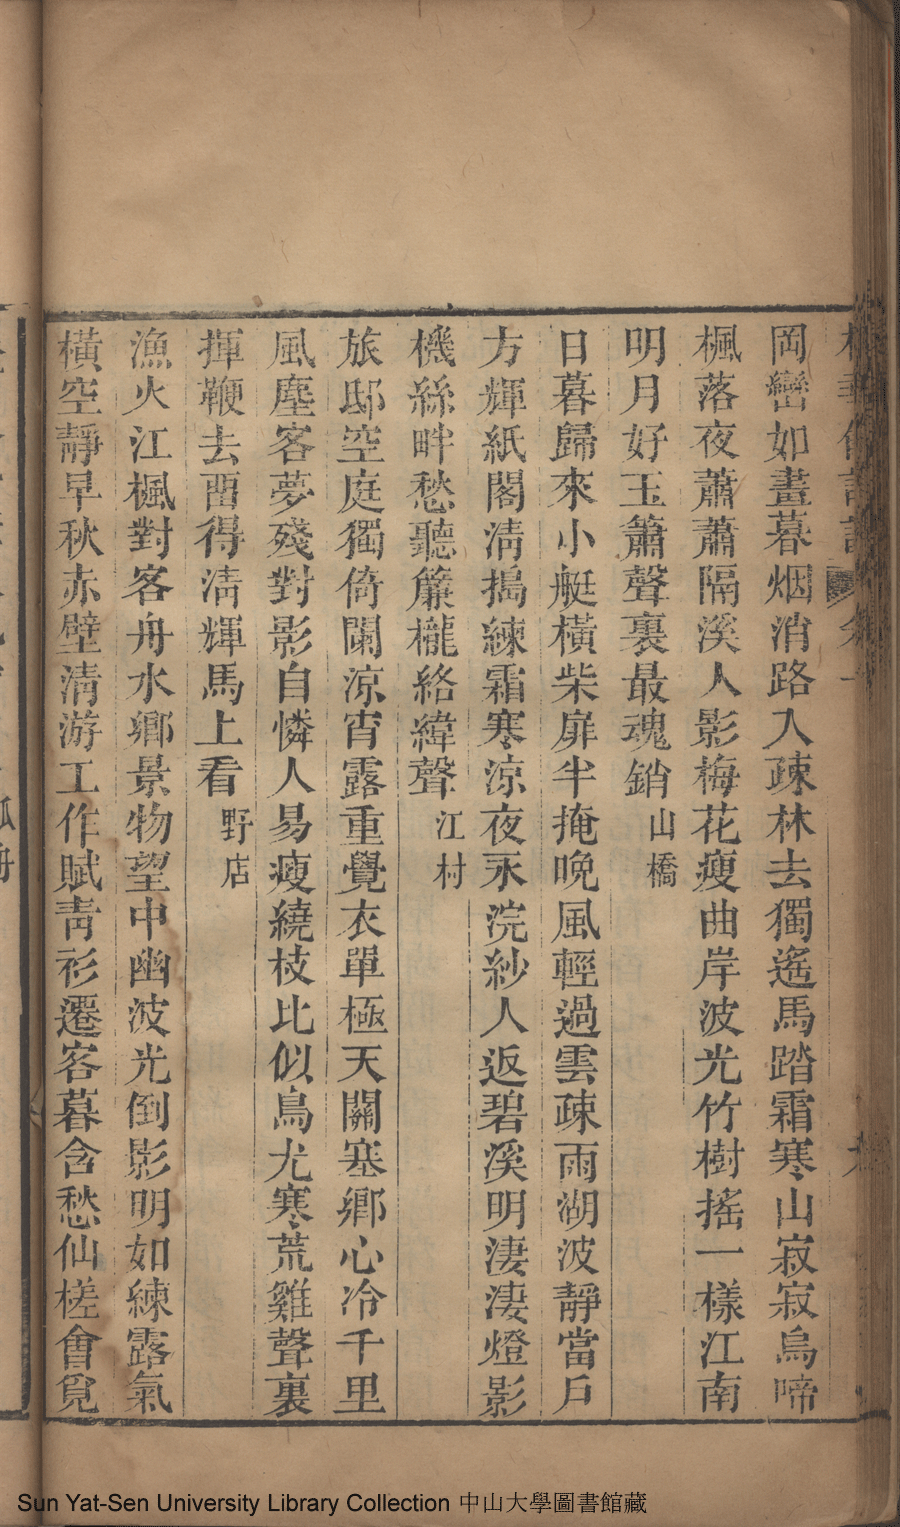 岡巒如畫暮烟消路入疎林去獨遙馬踏霜寒山寂寂烏啼
楓落夜蕭蕭隔溪人影梅花瘦曲岸波光竹樹搖一樣江南
明月好玉簫聲裏最魂銷山橋
日暮歸來小艇橫柴扉半掩晚風輕過雲疎雨湖波靜當戶
方輝紙閣淸搗練霜寒涼夜永浣紗人返碧溪明淒淒燈影
機絲畔愁聽簾櫳絡緯聲江村
旅邸空庭獨倚闌涼宵露重覺衣單極天關塞鄉心冷千里
風塵客夢殘對影自憐人易瘦繞枝比似鳥尤寒荒雞聲裏
揮鞭去畱得淸輝馬上看野店
漁火江楓對客舟水鄉景物望中幽波光倒影明如練露氣
橫空靜早秋赤壁淸游工作賦靑衫遷客暮含愁仙槎會覓
Sun Yat-Sen University Library Collection 中山大學圖書館藏